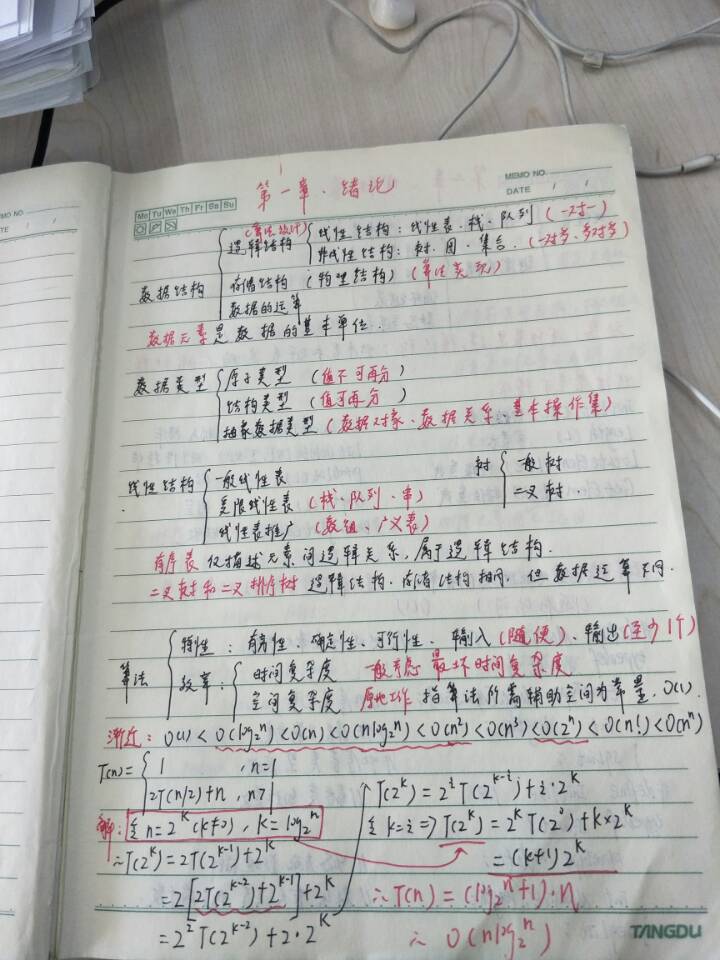 MEMO NO.
DATE / /
Mo Tu We Th Fr Sa Su
第一章、绪论
数据结构 { 逻辑结构 (算法设计) { 线性结构：线性表、栈、队列 (一对一)
非线性结构：树、图、集合、(一对多、多对多)
存储结构 (物理结构) (算法实现)
数据的运算
数据元素是数据的基本单位.
数据类型 { 原子类型 (值不可再分)
结构类型 (值可再分)
抽象数据类型 (数据对象、数据关系、基本操作集)
线性结构 { 一般线性表
受限线性表 (栈、队列、串)
线性表推广 (数组、广义表)
树 { 一般树
二叉树
有序表仅描述元素间逻辑关系，属于逻辑结构.
二叉树和二叉排序树逻辑结构、存储结构相同，但数据运算不同.
算法 { 特性：有穷性、确定性、可行性、输入(随便)、输出(至少1个)
效率：{ 时间复杂度 一般考虑最坏时间复杂度
空间复杂度 原地工作 指算法所需辅助空间为常量，O(1)
渐近：O(1) < O(log₂n) < O(n) < O(nlog₂n) < O(n²) < O(n³) < O(2ⁿ) < O(n!) < O(nⁿ)
T(n) = { 1 , n=1
2T(n/2)+n , n>1
解：令 n=2^k (k≠0) , k=log₂n
∴T(2^k) = 2T(2^{k-1})+2^k
=2[2T(2^{k-2})+2^{k-1}]+2^k
=2²T(2^{k-2})+2·2^k
T(2^k) = 2^i T(2^{k-i})+i·2^k
令 k=i ⇒ T(2^k) = 2^k T(2⁰)+k×2^k
=(k+1)2^k
∴T(n) = (log₂n+1)·n
∴ O(nlog₂n)
TANGDU